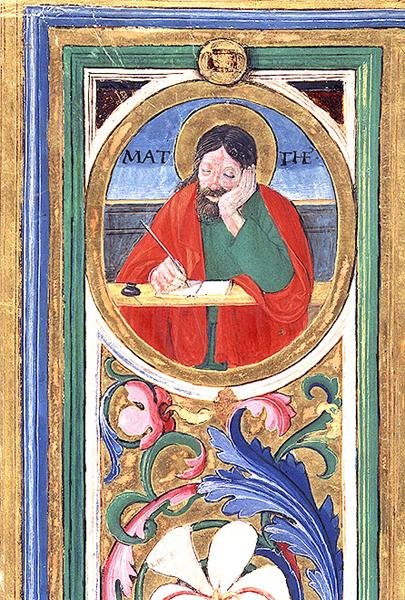 MAT THE